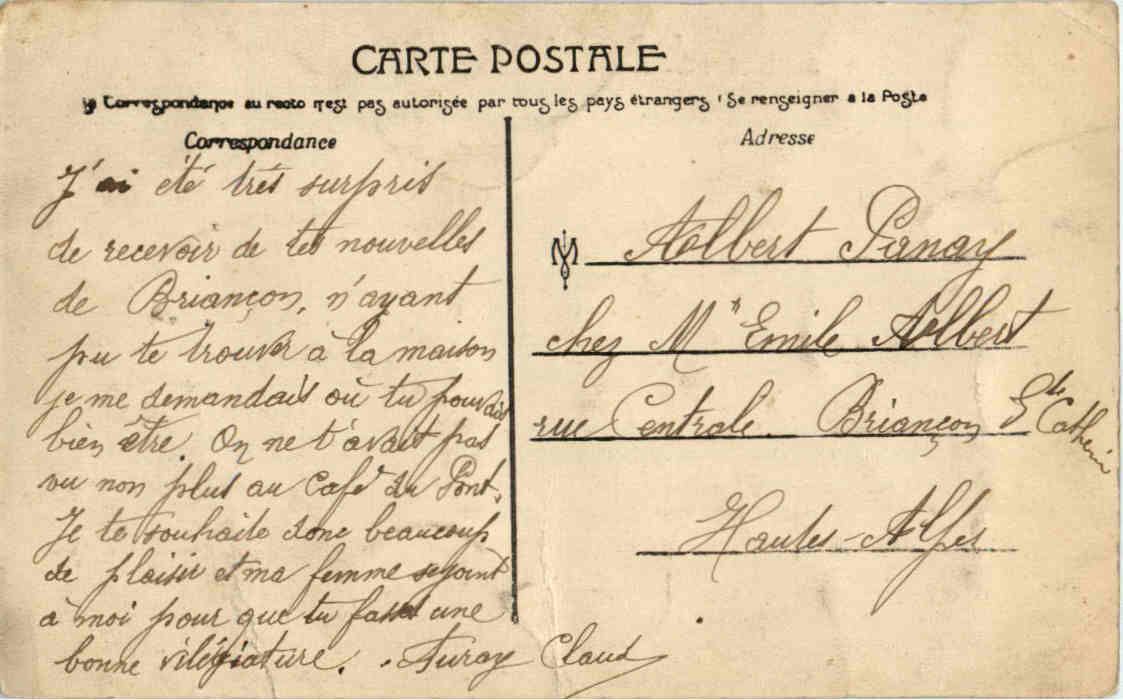 CARTE POSTALE
La Correspondance au recto n'est pas autorisée par tous les pays étrangers (Se renseigner a la Poste
Correspondance
J'ai été très surpris
de recevoir de tes nouvelles
de Briançon, n'ayant
pu te trouver à la maison
je me demandais où tu pouvais
bien être. On ne t'avait pas
vu non plus au Café du Pont.
Je te souhaite donc beaucoup
de plaisir et ma femme se joint
à moi pour que tu fasses une
bonne vilégiature. Claud
Adresse
M Albert Panay
chez Mr Emile Albert
rue Centrale Briançon Ste Catherine
Hautes-Alpes